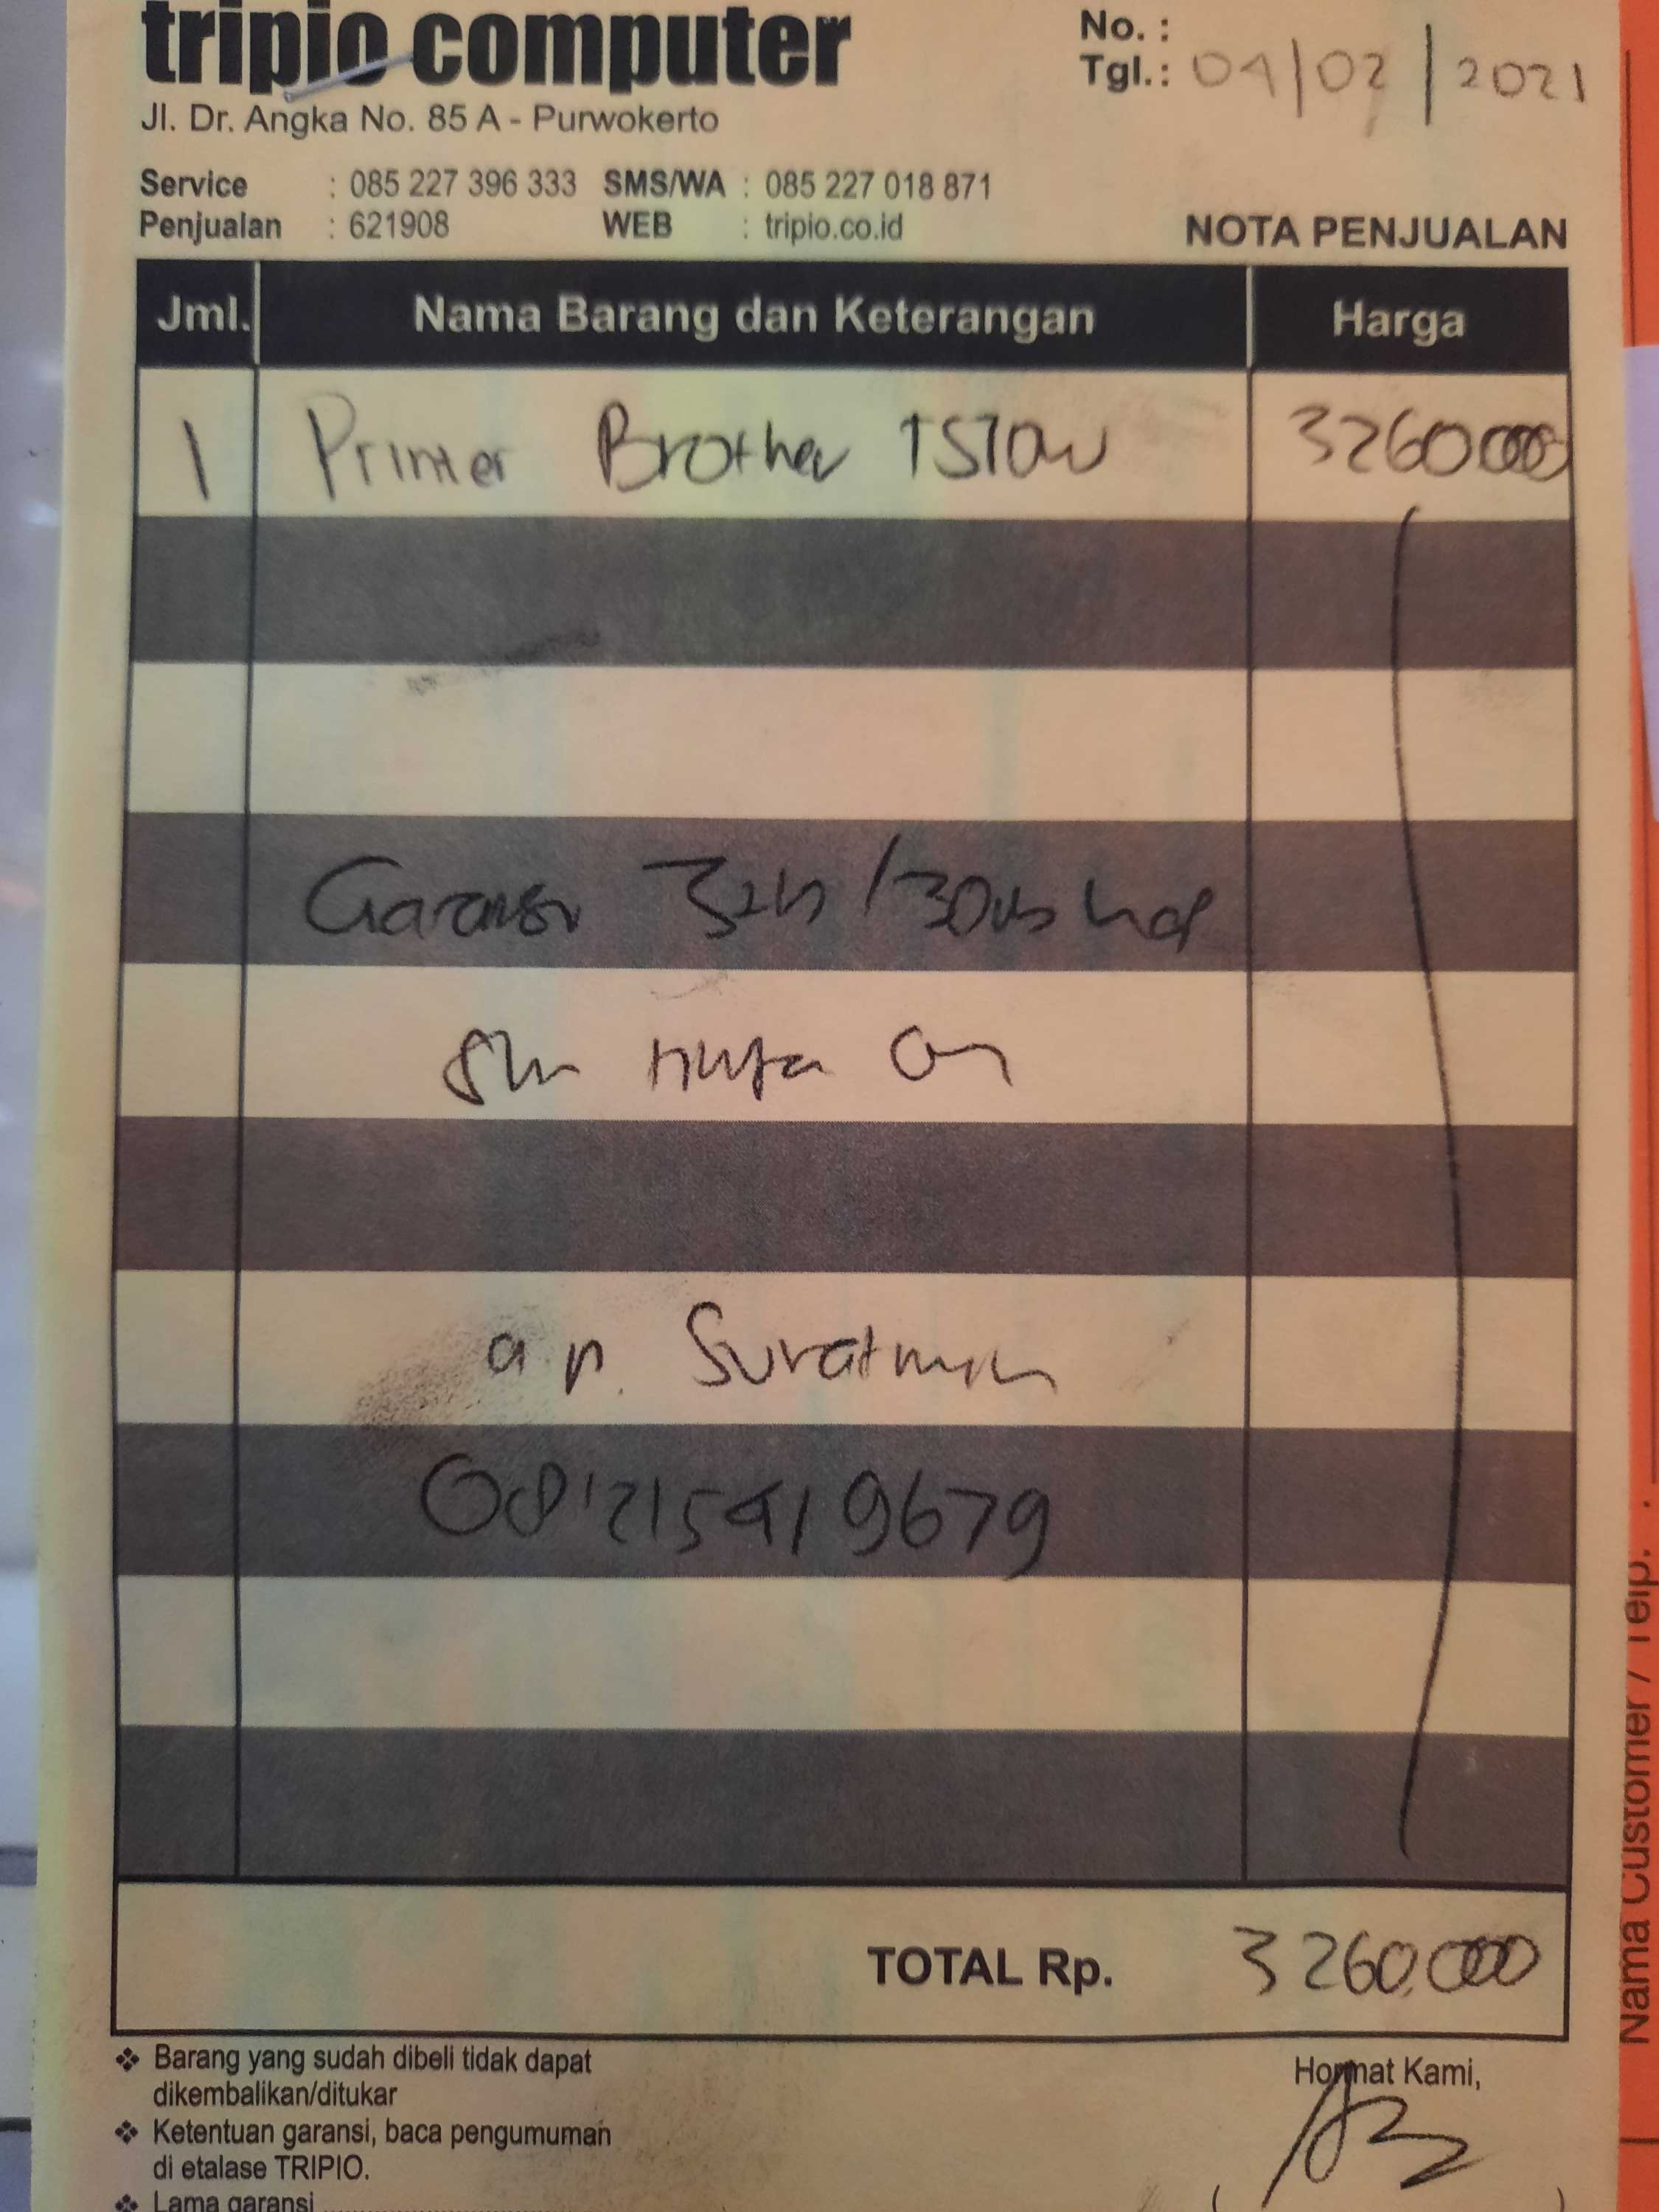 tripio computer
Jl. Dr. Angka No. 85 A - Purwokerto
No. :
Tgl. : 04/02/2021
Service : 085 227 396 333 SMS/WA : 085 227 018 871
Penjualan : 621908 WEB : tripio.co.id
NOTA PENJUALAN
Jml. Nama Barang dan Keterangan Harga
1 Printer Brother T510W 3260000
Garansi 3th /30rb
a.n. Suratman
081215419679
TOTAL Rp. 3260.000
❖ Barang yang sudah dibeli tidak dapat
dikembalikan/ditukar
❖ Ketentuan garansi, baca pengumuman
di etalase TRIPIO.
❖ Lama garansi
Hormat Kami,
Nama Customer / Telp. :